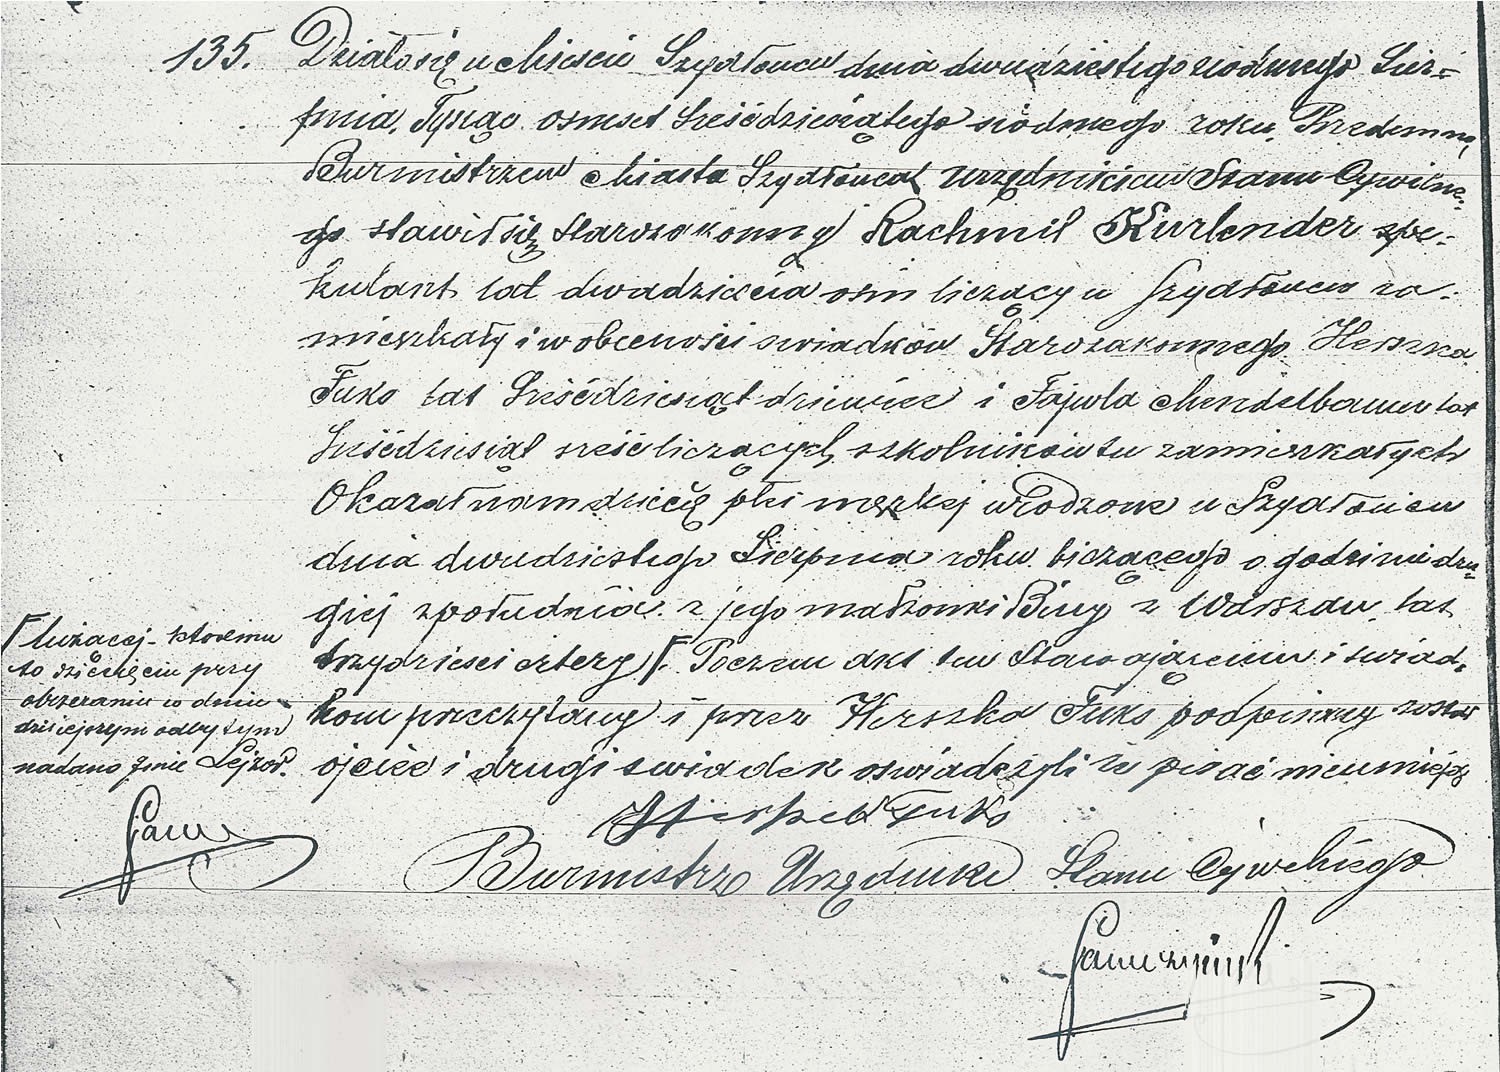 135. Działo się w Mieście Szydłowcu dnia dwudziestego siodmego Sier=
pnia, Tysiąc osmset sześćdziesiątego siódmego roku, Przedemną
Burmistrzem Miasta Szydłowca Urzędnikiem Stanu Cywilne=
go stawił się Starozakonny Rachmil Kurlender spe=
kulant lat dwadzieścia ośm liczący w Szydłowcu za=
mieszkały i w obecności swiadków Starozakonnego Herszka
Fuks lat sześćdziesiąt dziewięć i Fajwla Mendelbaum lat
sześćdziesiąt sześć liczących, szkolników tu zamieszkałych
Okazał nam dziecię płci męzkiej urodzone w Szydłowcu
dnia dwudziestego Sierpnia roku bieżącego o godzinie dru=
giej z południa z jego małżonki Biny z Warszaw lat
trzydzieści cztery Γ. Poczem akt ten Stawającemu i swiad=
kom przeczytany i przez Herszka Fuks podpisany został
ojciec i drugi swiadek oswiadczyli że pisać nieumieją
Γ któremu
to dziecięciu przy
obrzezaniu w dniu
dzisiejszym odbytym
nadano Jmie Lejzor.
Herszek Fuks
Burmistrz Urzędnik Stanu Cywilnego